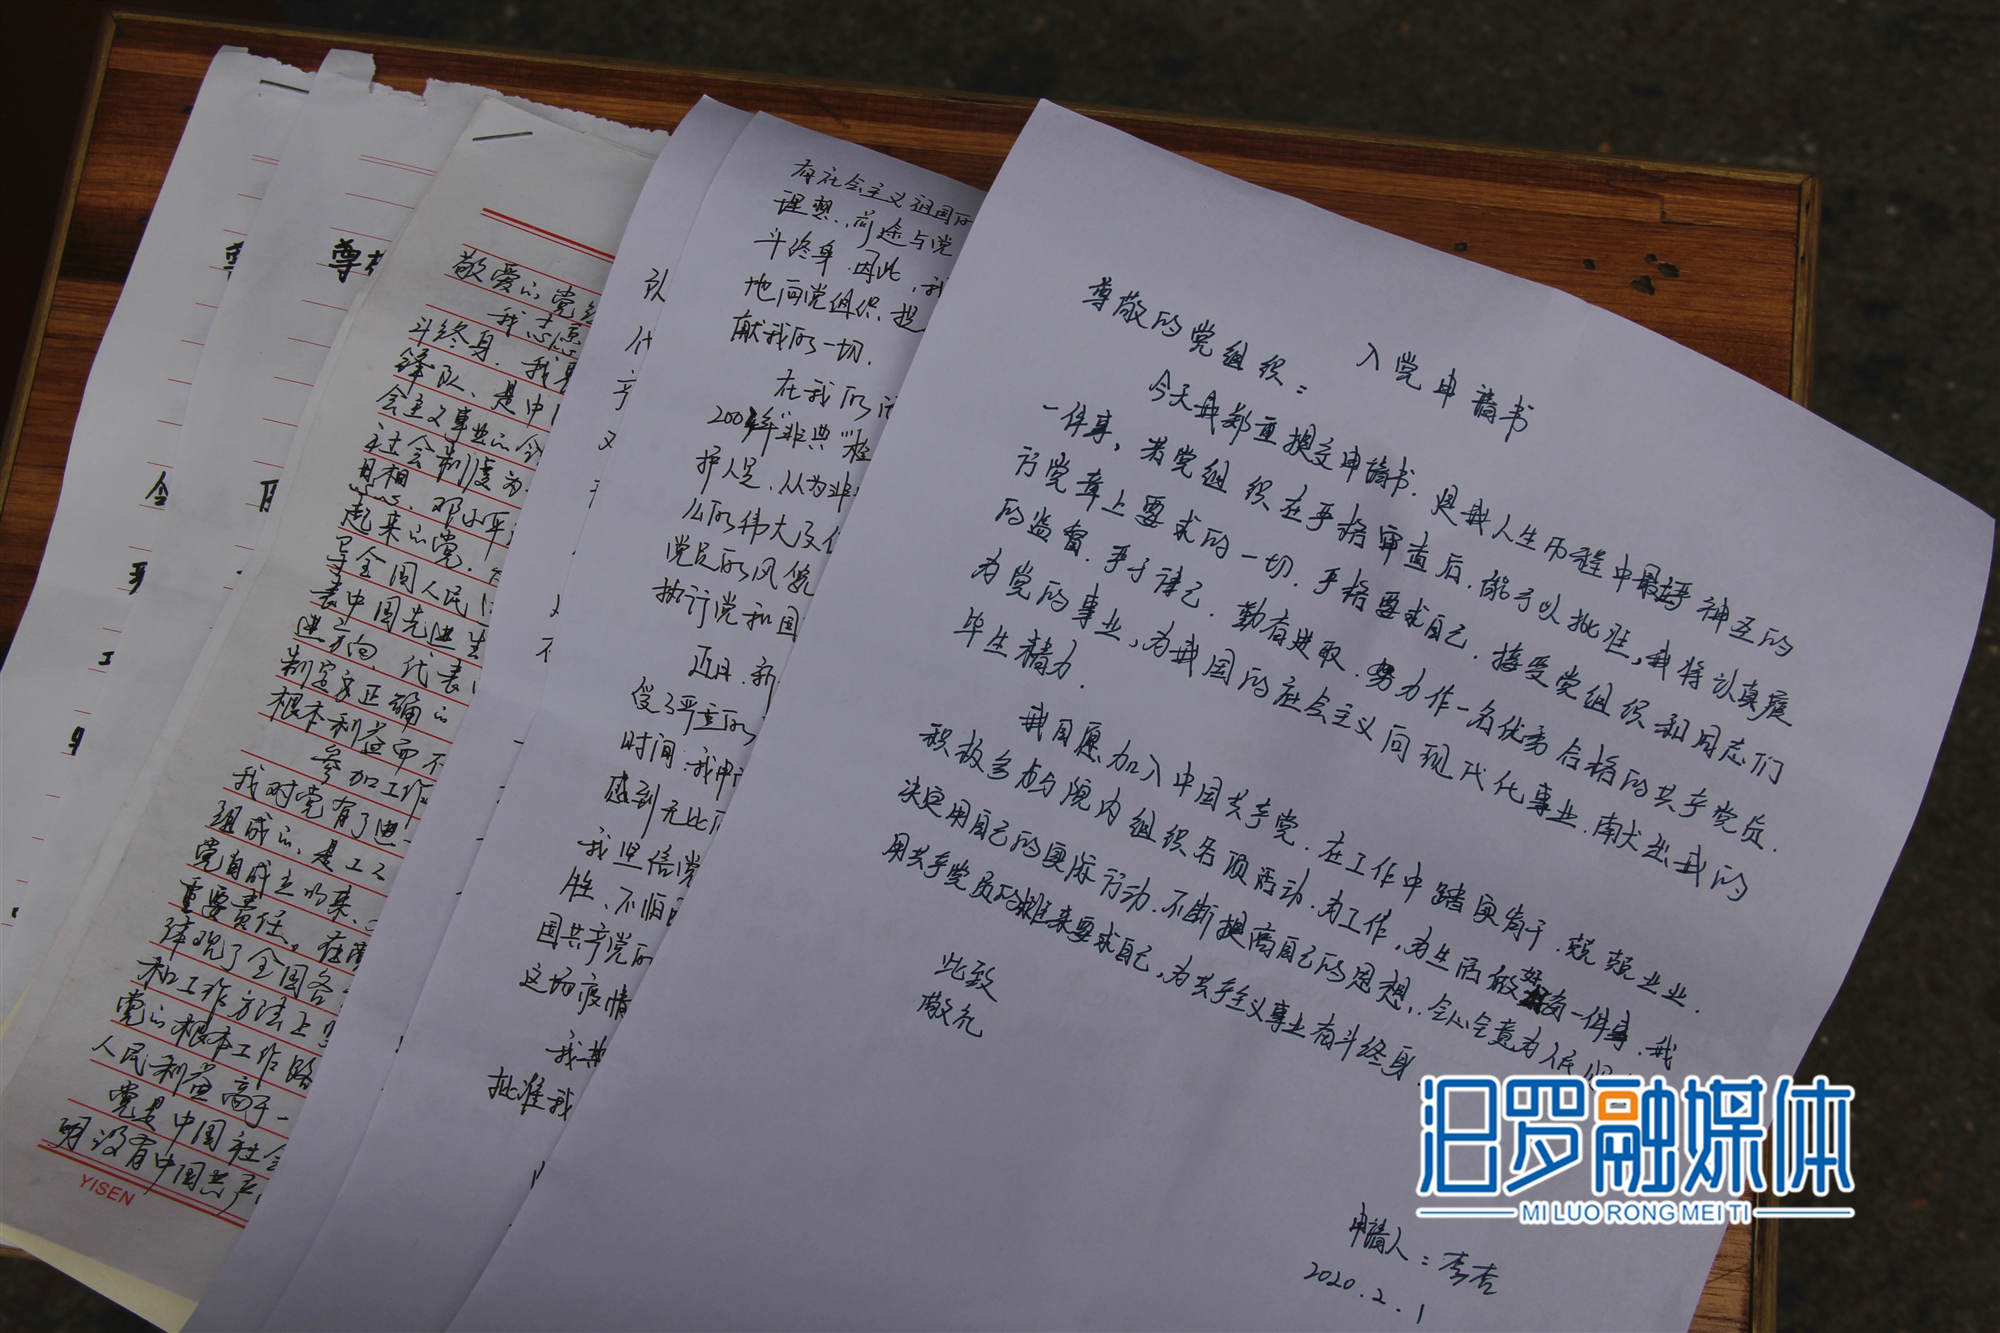 入党申请书
尊敬的党组织：
今天我郑重提交申请书，是我人生历程中最神圣的
一件事，若党组织在严格审查后，能予以批准，我将认真履
行党章上要求的一切，严格要求自己，接受党组织和同志们
的监督，严于律己，勤奋进取，努力作一名优秀合格的共产党员，
为党的事业，为我国的社会主义向现代化事业，献出我的
毕生精力．
我自愿加入中国共产党，在工作中踏实肯干，兢兢业业．
积极参与院内组织各项活动，为工作，为生活做好每一件事，我
决定用自己的实际行动，不断提高自己的思想，全心全意为人民
用共产党员的标准来要求自己，为共产主义事业奋斗终身．
此致
敬礼
申请人：李杏
2020.2.1
有社会主义祖国的
理想，前途与党
斗终身，因此，我
地向党组织，提
献我的一切．
在我的
护人员，从为非
么的伟大及
党员的风
执行党和国
近日，新
受了严重的
时间：我申
感到无比
我坚信党
胜，不怕
国共产党的
这场疫情
我
批准我
队
代
敬爱的党
我志愿
斗终身，我
锋队，是中
会主义事业的
社会制度为
思想、邓小平
起来的党，
导全国人民
表中国先进生
进方向，代表
制定正确的
根本利益而不
参加工作
我对党有了进一
组成的，是工
党自成立以来，
重要责任。在
体现了全国各
和工作方法上
党的根本工作路
人民利益高于一
党是中国社会
明没有中国共产
YISEN
尊
汨罗融媒体
MI LUO RONG MEI TI